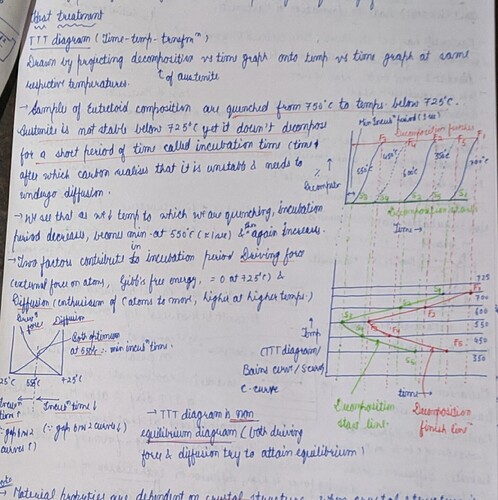 Heat treatment
TTT diagram (Time-temp-transfmⁿ)
Drawn by projecting decomposition vs time graph onto temp vs time graph at same
respective temperatures.
of austenite
→ Sample of Eutectoid composition are quenched from 750°C to temps. below 725°C.
Austenite is not stable below 725°C yet it doesn't decompose
for a short period of time called incubation time (time
after which carbon realises that it is unstable & needs to
undergo diffusion.
→ We see that as we ↓ temp to which we are quenching, incubation
period decreases, becomes min. at 550°C (≈1sec) & then again increases.
→ Two factors contribute in incubation period Driving force
(external force on atoms, Gibb's free energy, = 0 at 725°C) &
Diffusion (enthusiasm of C atoms to move, higher at higher temps.)
Min Incuⁿ period (1sec)
Decomposition finishes
F3
F4
F2
F5
F1
550°C
450°C
600°C
350°C
700°C
% Decompositⁿ
Decomposition starts
Time →
Driveⁿ force
Diffusion
Both optimum
at 550°C ∴ min incuⁿ time.
25°C
550°C
725°C
Incuⁿ time ↓
(∵ gap b/w 2 curves ↓)
↑
Temp
(TTT diagram/
Bains curve/S curve/
C-curve
725
700
600
550
450
350
F1
F4
F5
time →
Decomposition
start line
Decomposition
finish line
→ TTT diagram is non
equilibrium diagram (both driving
force & diffusion try to attain equilibrium)
→ Material properties are dependent on crystal structure